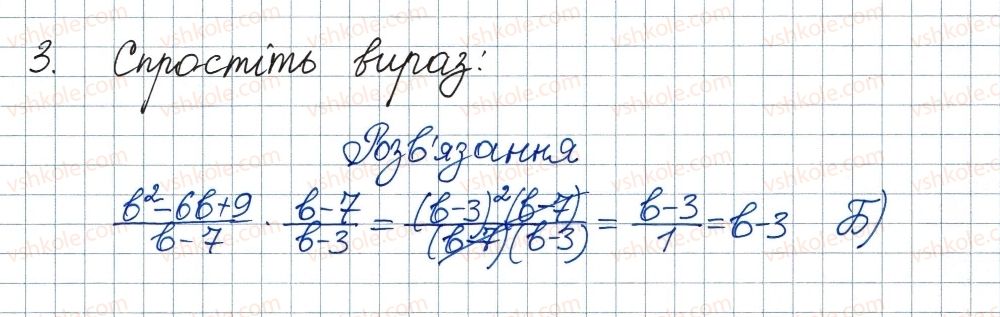 3. Спростіть вираз:
Розв'язання
(b²-6b+9)/(b-7) · (b-7)/(b-3) = ((b-3)²(b-7))/((b-7)(b-3)) = (b-3)/1 = b-3 Б)